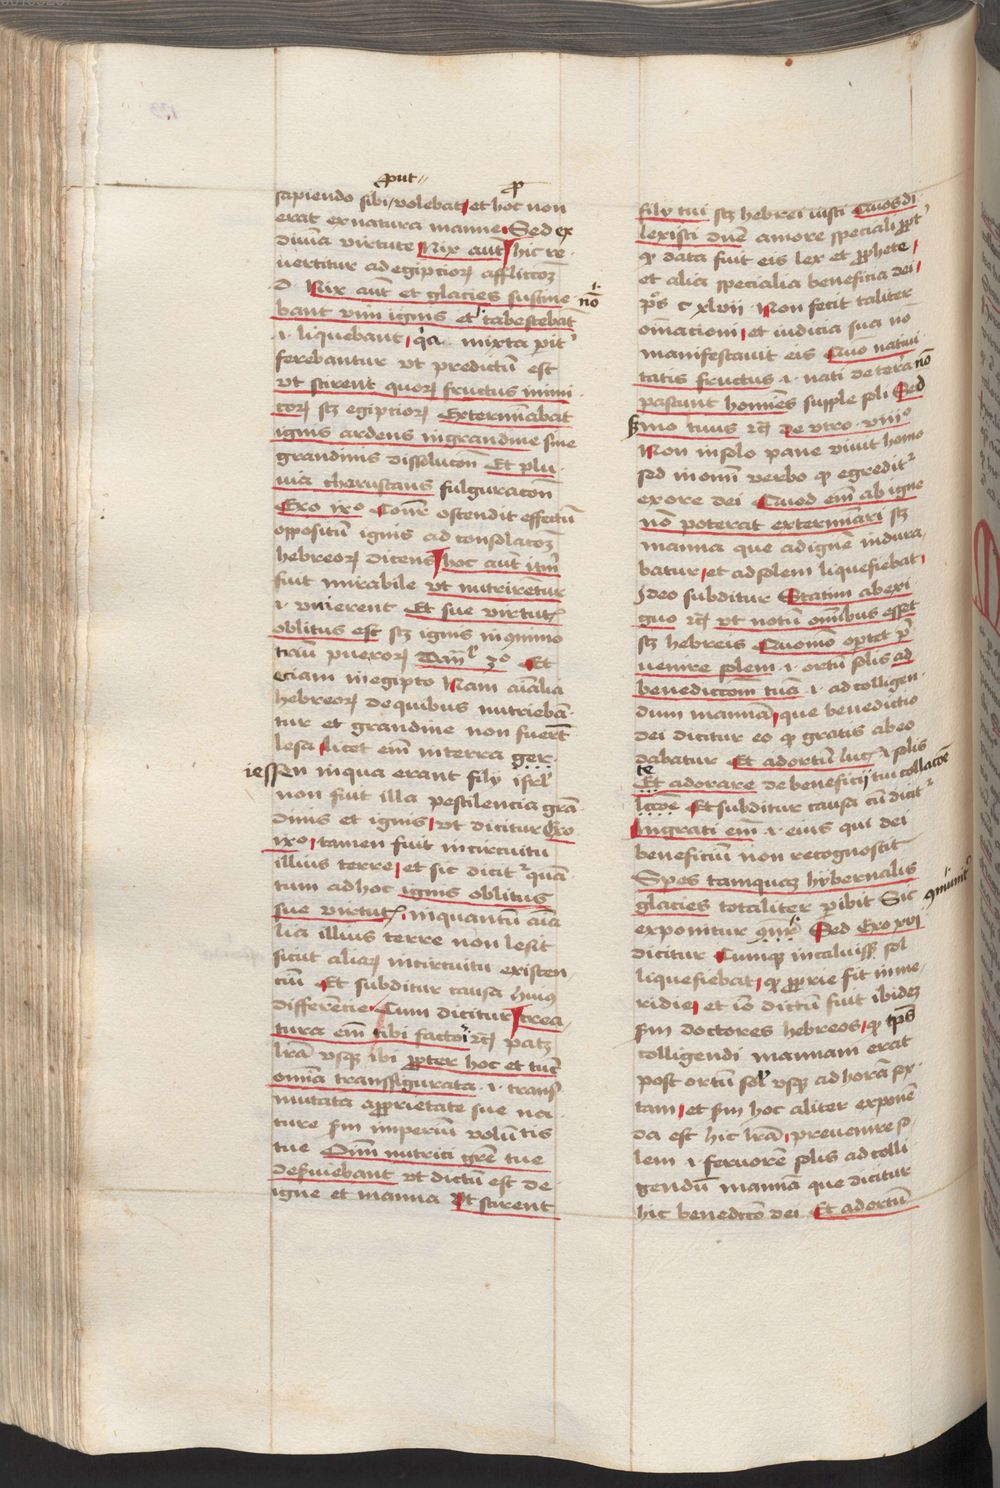 put
sapiendo sibi volebat et hoc non
erat ex natura manne Sed ex
diuīa virtute Nix aūt hic re
uertitur ad egiptioꝝ afflictōꝫ
d Nix aūt et glacies sustine
bant vim ignis et tabescebāt nō
.i. liquebant qꝛ mixta pīt
ferebantur vt predictū est
vt scirent quoꝝ fructus inimi
coꝝ scꝫ egiptioꝝ Extermīabat
ignis ardens in grandine siue
grandinis dissolucōn Et plu
uia choruscans fulguracōn
Exo ixº Conʳ ostendit effectū
oppositū ignis ad consolacōꝫ
hebreoꝝ dicens hoc aūt itm̄
fuit mirabile vt nutrirētur
.i. viuerent Et sue virtutꝭ
oblitus est scꝫ ignis in cōmino
triū pueroꝝ Danˡ 3º Et
eciam in egipto Nam aīalia
hebreoꝝ de quibus nutriebā
tur et grandine non fuerūt
lesa licet eīm in terra ger
iessen in qua erant filij isrl̄
non fuit illa pestilencia grā
dinis et ignis vt dicitur Exo
ixº tamen fuit in circuitu
illius terre et sic dicitʳ quā
tum ad hoc ignis oblitus
sue virtutꝭ inquantū aīa
lia illius terre non lesit
sicut alioꝝ in circuitu existen
ciū Et subditur causa huius
differencie Cum dicitur Crea
tura eīm tibi factori ꝛc̄ patꝫ
lrā vsqꝫ ibi ꝓpter hoc et tūc
om̄ia transfigurata .i. trans
mutata a ꝓprietate sue na
ture scd̄m imperiū volūtis
tue Om̄i nutrici grē tue
deseruiebant vt dictū est de
igne et manna Vt scirent
filij tui scꝫ hebrei iusti Quos di
lexisti dn̄e amore speciali ꝓpt
qꝫ data fuit eis lex et ꝓphete
et alia specialia beneficia dei
pˢ cxlvii Non fecit taliter
om̄i nacioni et iudicia sua nō
manifestauit eis Quō natiui
tatis fructus .i. nati de terra nō
pascunt homīes supple soli Sed
sermo tuus ꝛc̄ deutro viiiº
Non in solo pane viuit homo
sed in om̄i verbo qꝫ egreditʳ
ex ore dei Quod eīm ab igne
nō poterat extermīari scꝫ
manna que ad ignē indura
batur et ad solem liquefiebat
Jdeo subditur Statim ab exi
guo ꝛc̄ vt notū om̄ibus esset
scꝫ hebreis Quoniō optet p̄
uenire solem .i. ortū solis ad
benedictionē tuā .i. ad colligen
dum mannā que benedictio
dei dicitur eo qꝫ gratis ab eo
dabatur Et ad ortū lucꝭ .i. solis
te
Et adorare de beneficij tui collacōe
lccoē Et subditur causa cū dicitʳ
Ingrati eīm .i. eius qui dei
beneficiū non recognoscit
Spes tamquaꝫ hybernalis
glacies totaliter ꝑibit Sic
exponitur Sed Exo xvi
dicitur Cumqꝫ incaluissꝫ sol
liquefiebat qꝫ ꝓprie fit in me
ridie et iō dictū fuit ibideꝫ
scd̄m doctores hebreos qꝫ tp̄s
colligendi mannam erat
post ortū sol vsqꝫ ad horā sex
tam et scd̄m hoc aliter exponē
da est hic lrā preuenire so
lem .i. feruorē solis ad colli
gendū mannā que dicitur
hic benedictō dei Et ad ortū